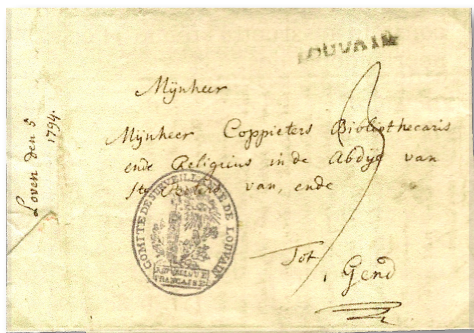 LOUVAIN
Mÿnheer
Mÿnheer Coppieters Bibliothecaris
ende Religieus in de Abdÿe van
van, ende
Tot
Gend
3
Loven den 5
1794.
COMITE DE SURVEILLANCE DE LOUVAIN
REPUBLIQUE
FRANCAISE